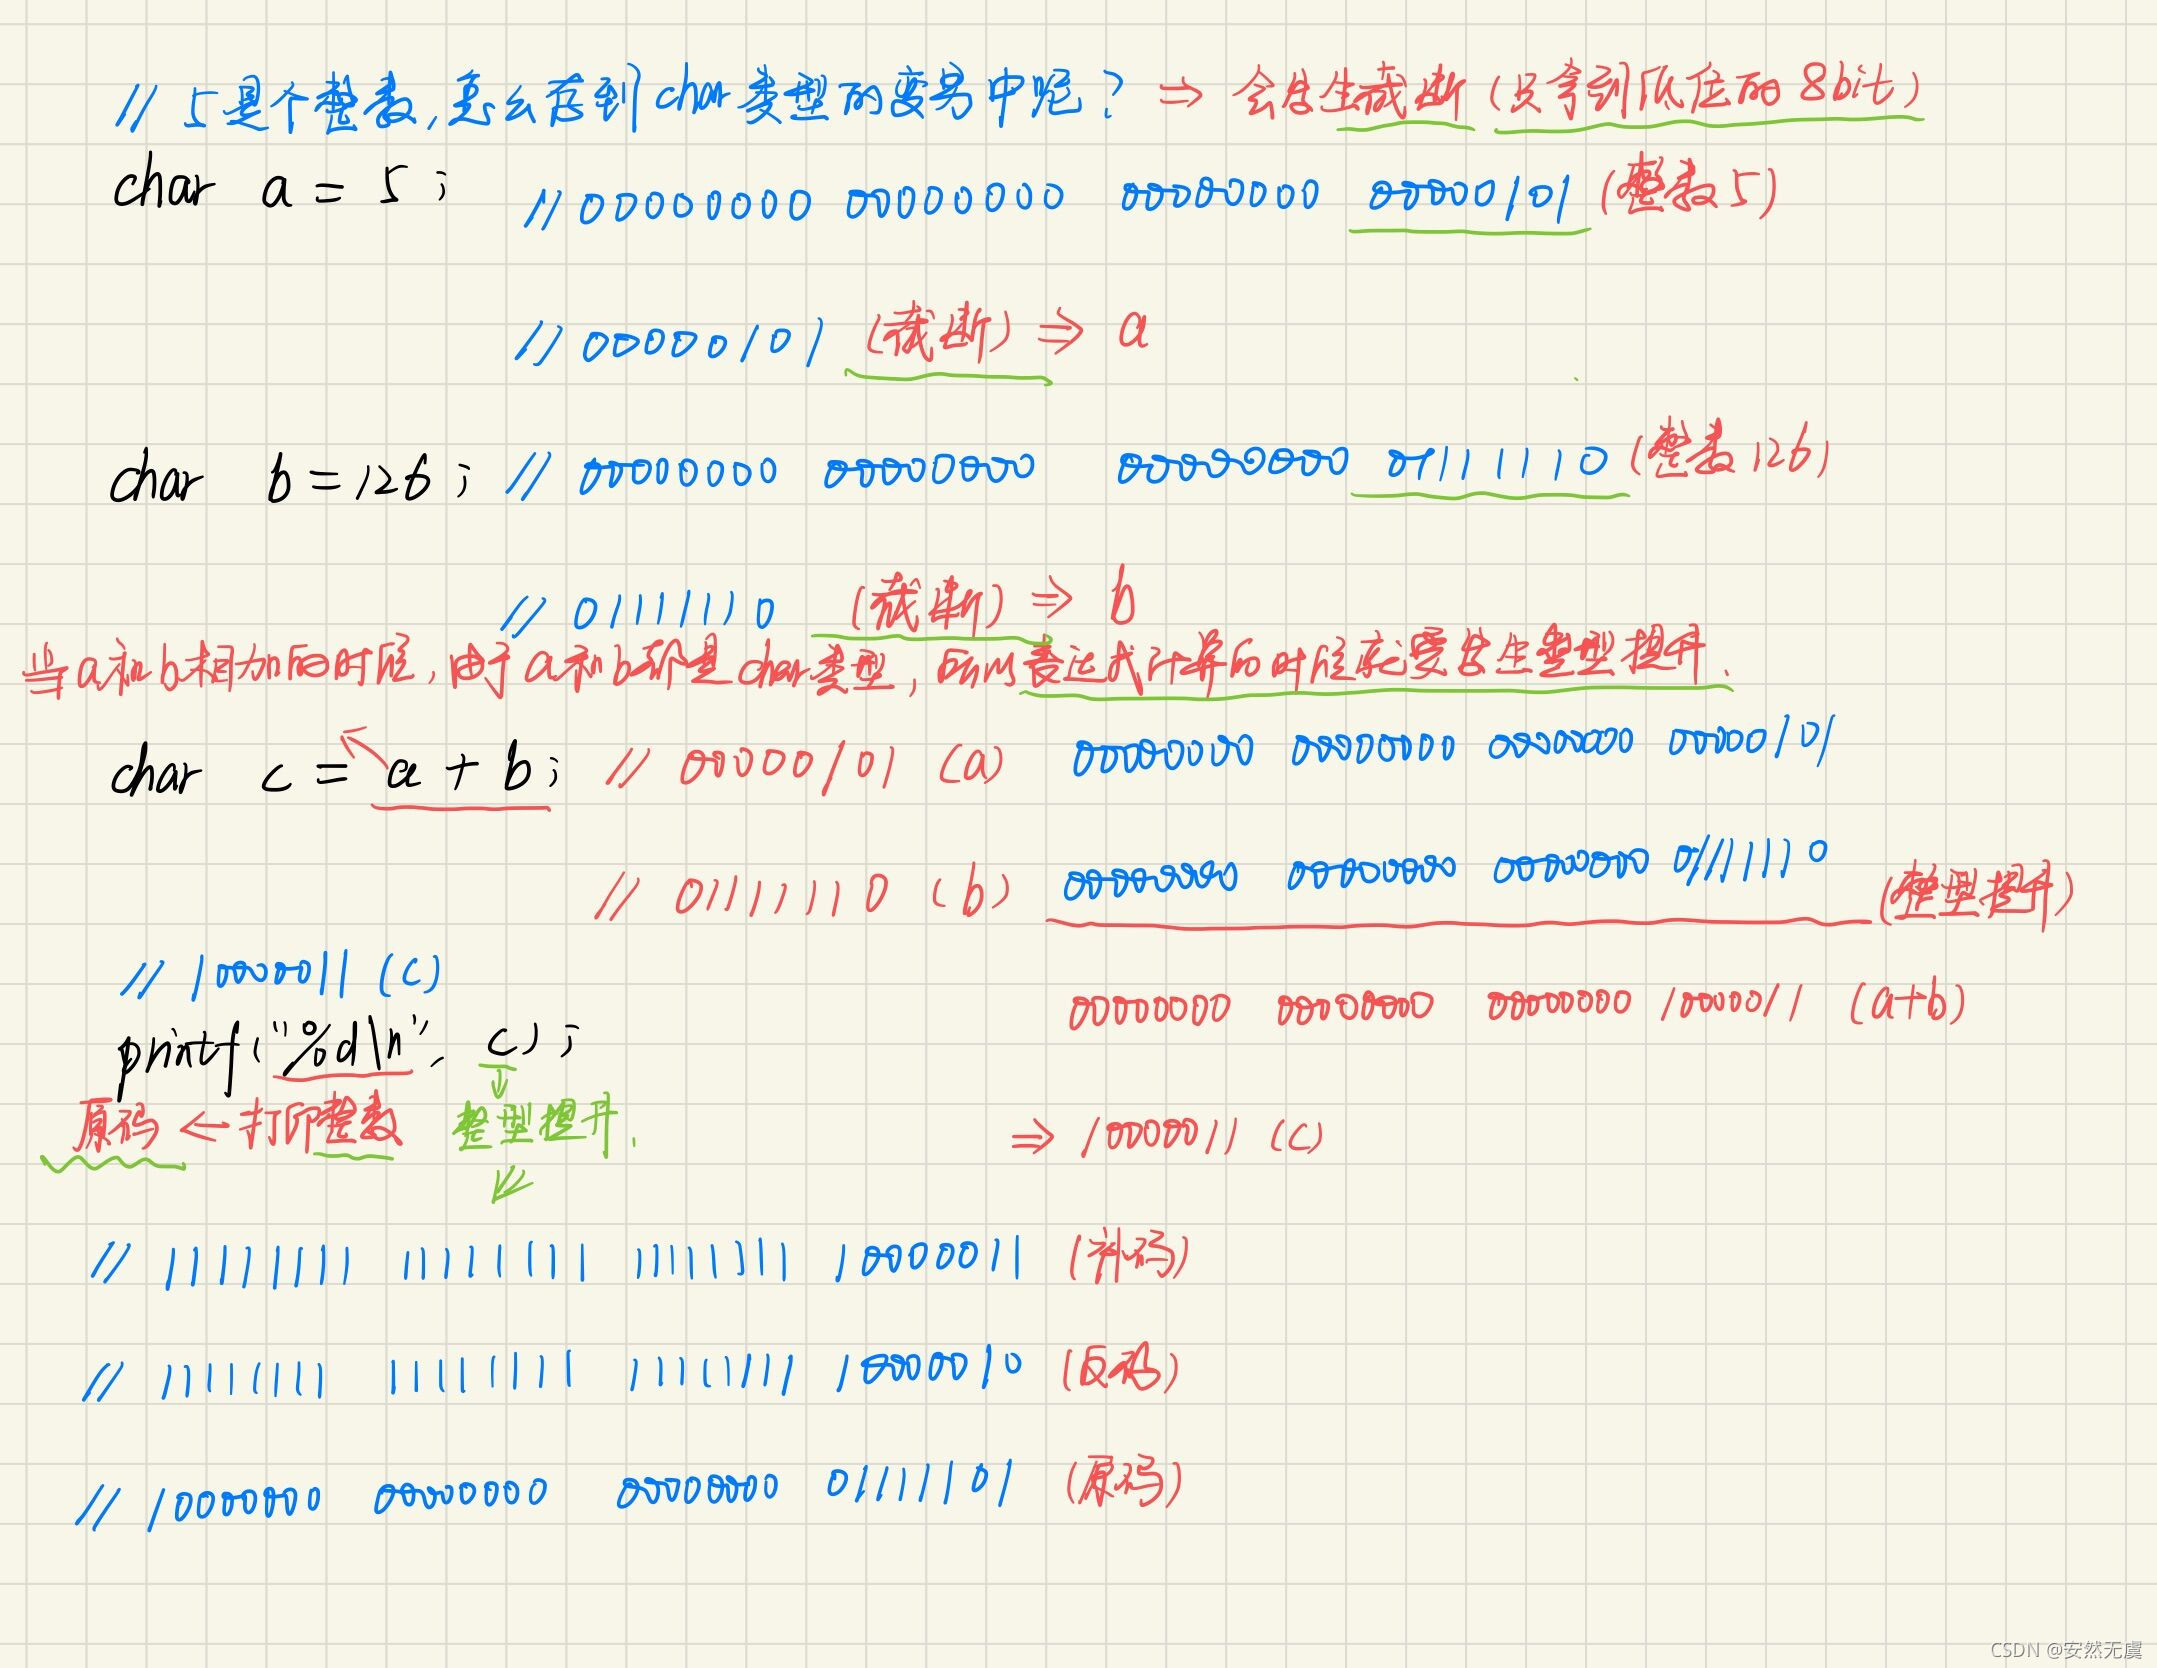 // 5是个整数,怎么存到char类型的变量中呢? ⇒ 会发生截断(只拿到低位的8bit)
char a = 5; // 00000000 00000000 00000000 00000101 (整数5)
// 00000101 (截断) ⇒ a
char b = 126; // 00000000 00000000 00000000 01111110 (整数126)
// 01111110 (截断) ⇒ b
当a和b相加的时候,由于a和b都是char类型,所以表达式计算的时候就要发生整型提升.
char c = a + b; // 00000101 (a) 00000000 00000000 00000000 00000101
// 01111110 (b) 00000000 00000000 00000000 01111110 (整型提升)
// 10000011 (c)
00000000 00000000 00000000 10000011 (a+b)
printf("%d\n", c);
原码 ← 打印整数 整型提升.
⇒ 10000011 (c)
// 11111111 11111111 11111111 10000011 (补码)
// 11111111 11111111 11111111 10000010 (反码)
// 10000000 00000000 00000000 01111101 (原码)
CSDN @安然无虞